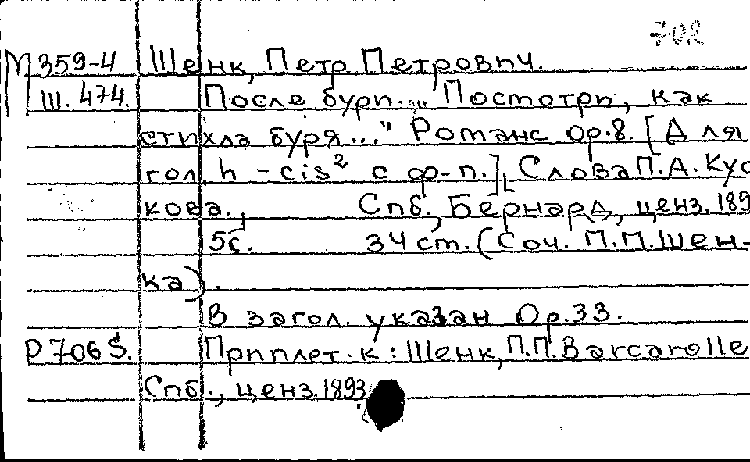 702
М 359-4 Шенк, Петр Петрович.
Ш. 474. После бури. „Посмотри, как
стихла буря..." Романс ор.8. [Для
гол. h - cis² с ф-п.], Слова П.А. Кус
кова., Спб., Бернард, ценз. 189
5с. 34 ст. (Соч. П.П.Шен-
ка).
В загол. указан Ор.33.
Р 706 S. Приплет. к: Шенк, П.П. Barcarolle
Спб., ценз. 1893